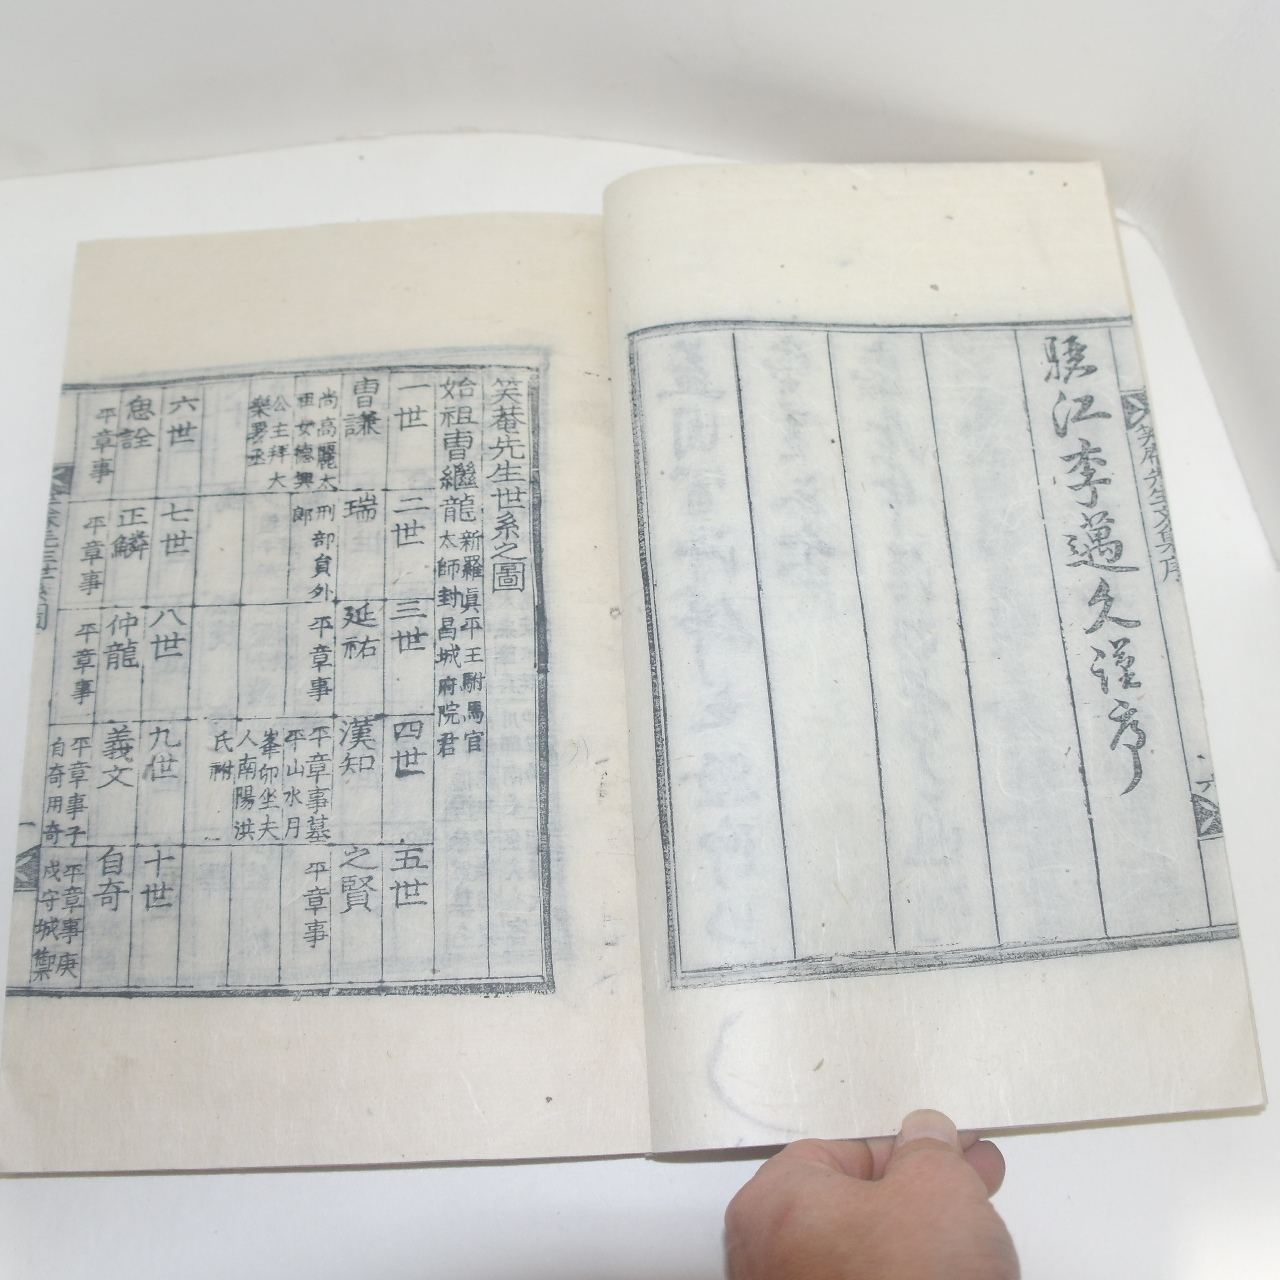 驪江李邁久謹序
六
笑菴先生世系之圖
始祖曺繼龍
新羅眞平王駙馬官
太師封昌城府院君
一世
曺謙
尚高麗太
祖女德興
公主拜大
樂署丞
二世
瑞
刑部員外
郞
三世
延祐
平章事
四世
漢知
平章事墓
平山水月
峯卯坐夫
人南陽洪
氏祔
五世
之賢
平章事
六世
思詮
平章事
七世
正鱗
平章事
八世
仲龍
平章事
九世
義文
平章事子
自奇用奇
十世
自奇
平章事庚
戍守城禦